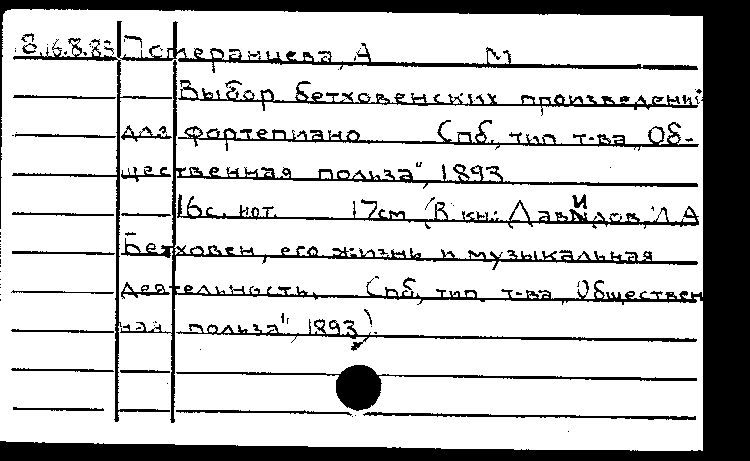 8.16.8.83 Померанцева, А М
Выбор бетховенских произведений
для фортепиано Спб., тип. т-ва „Об-
щественная польза", 1893
16с. нот. 17см (В кн.: Давидов, И.А
Бетховен, его жизнь и музыкальная
деятельность. Спб., тип. т-ва „Обществен
ная польза", 1893).